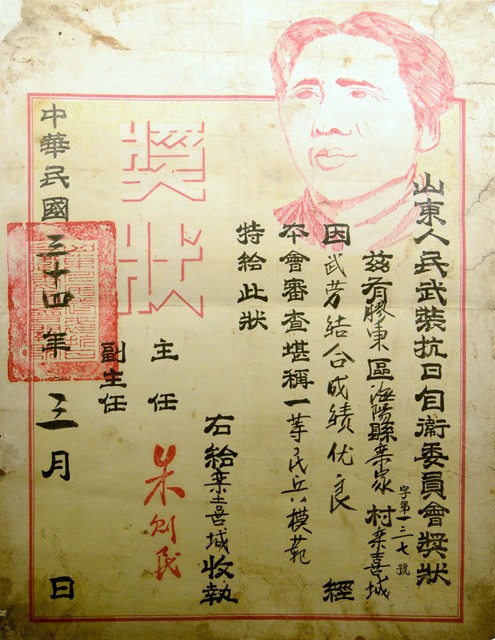 山東人民武裝抗日自衛委員會獎狀
字第一三七號
茲有膠東區海陽縣栾家村栾喜城
因武劳结合成績优良經
本會審查堪稱一等民兵模範
特給此狀
獎狀
右給栾喜城收執
主任 朱则民
副主任
中華民國三十四年三月 日